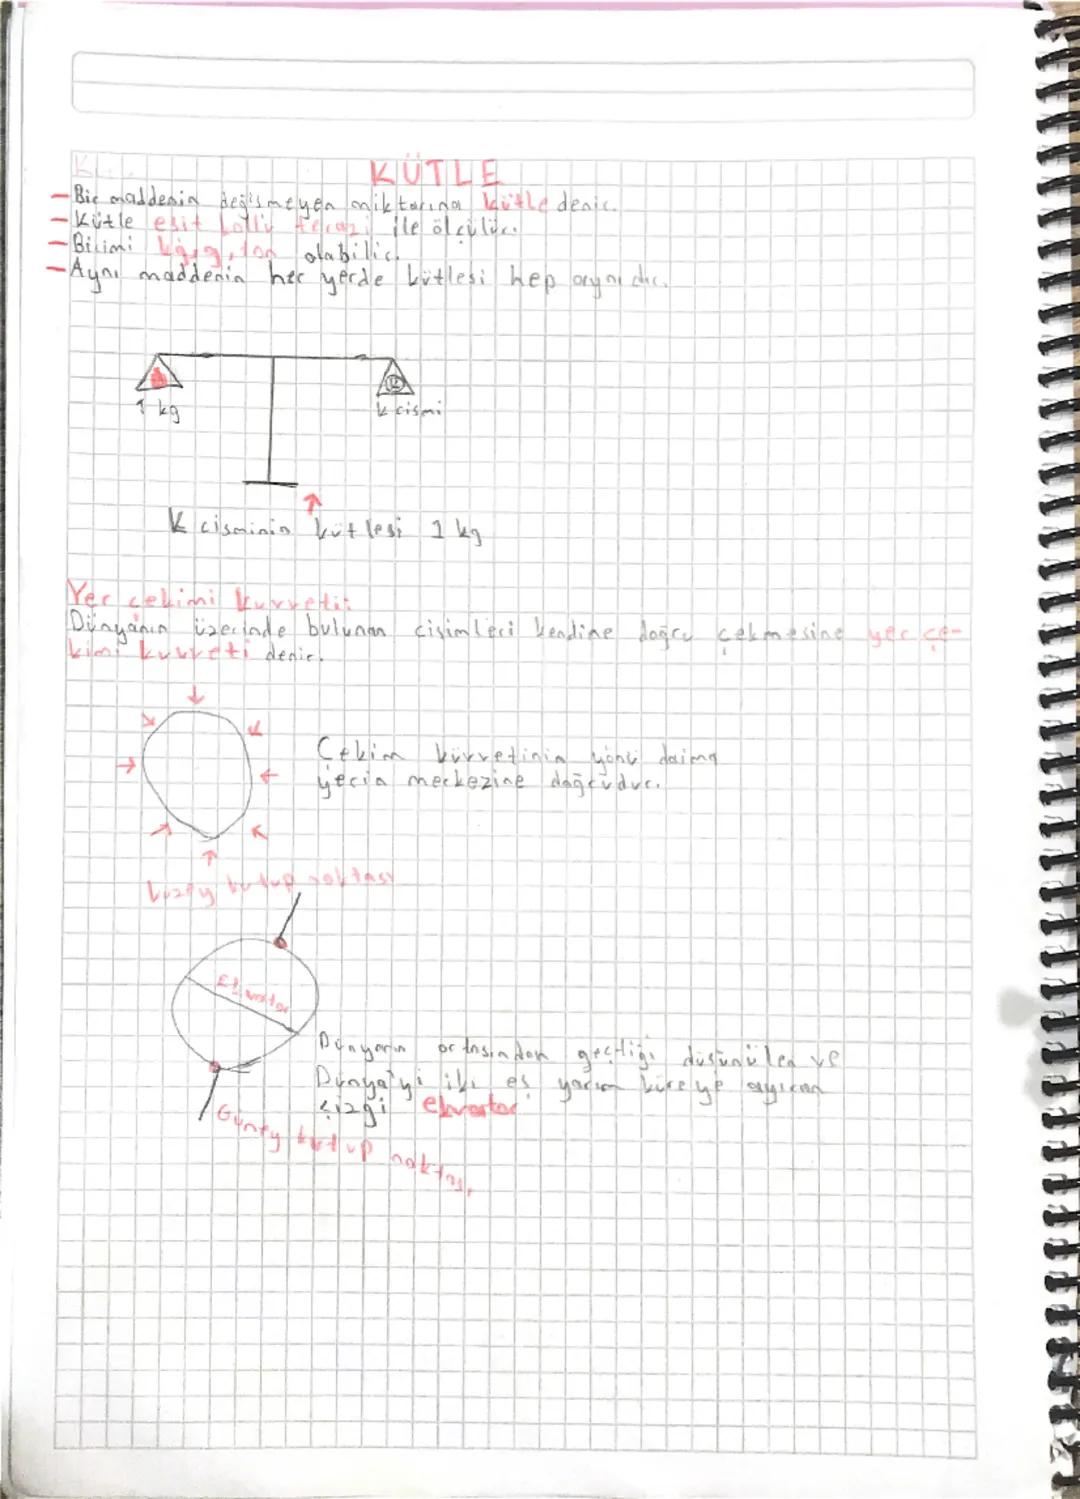 KÜTLE
- Bir maddenin değişmeyen miktarına kütle denir.
- Kütle eşit kollu terazi ile ölçülür.
- Birimi kg, g, ton olabilir.
- Aynı maddenin her yerde kütlesi hep aynıdır.
1 kg
K
K cismi
K cisminin kütlesi 1 kg
Yer çekimi kuvveti:
Dünyanın üzerinde bulunan cisimleri kendine doğru çekmesine yer çe-
kimi kuvveti denir.
Çekim kuvvetinin yönü daima
yerin merkezine doğrudur.
kuzey kutup noktası
Ekvator
Dünyanın ortasından geçtiği düşünülen ve
Dünya'yi iki eş yarım küreye ayıran
çizgi ekvator
Güney kutup noktası